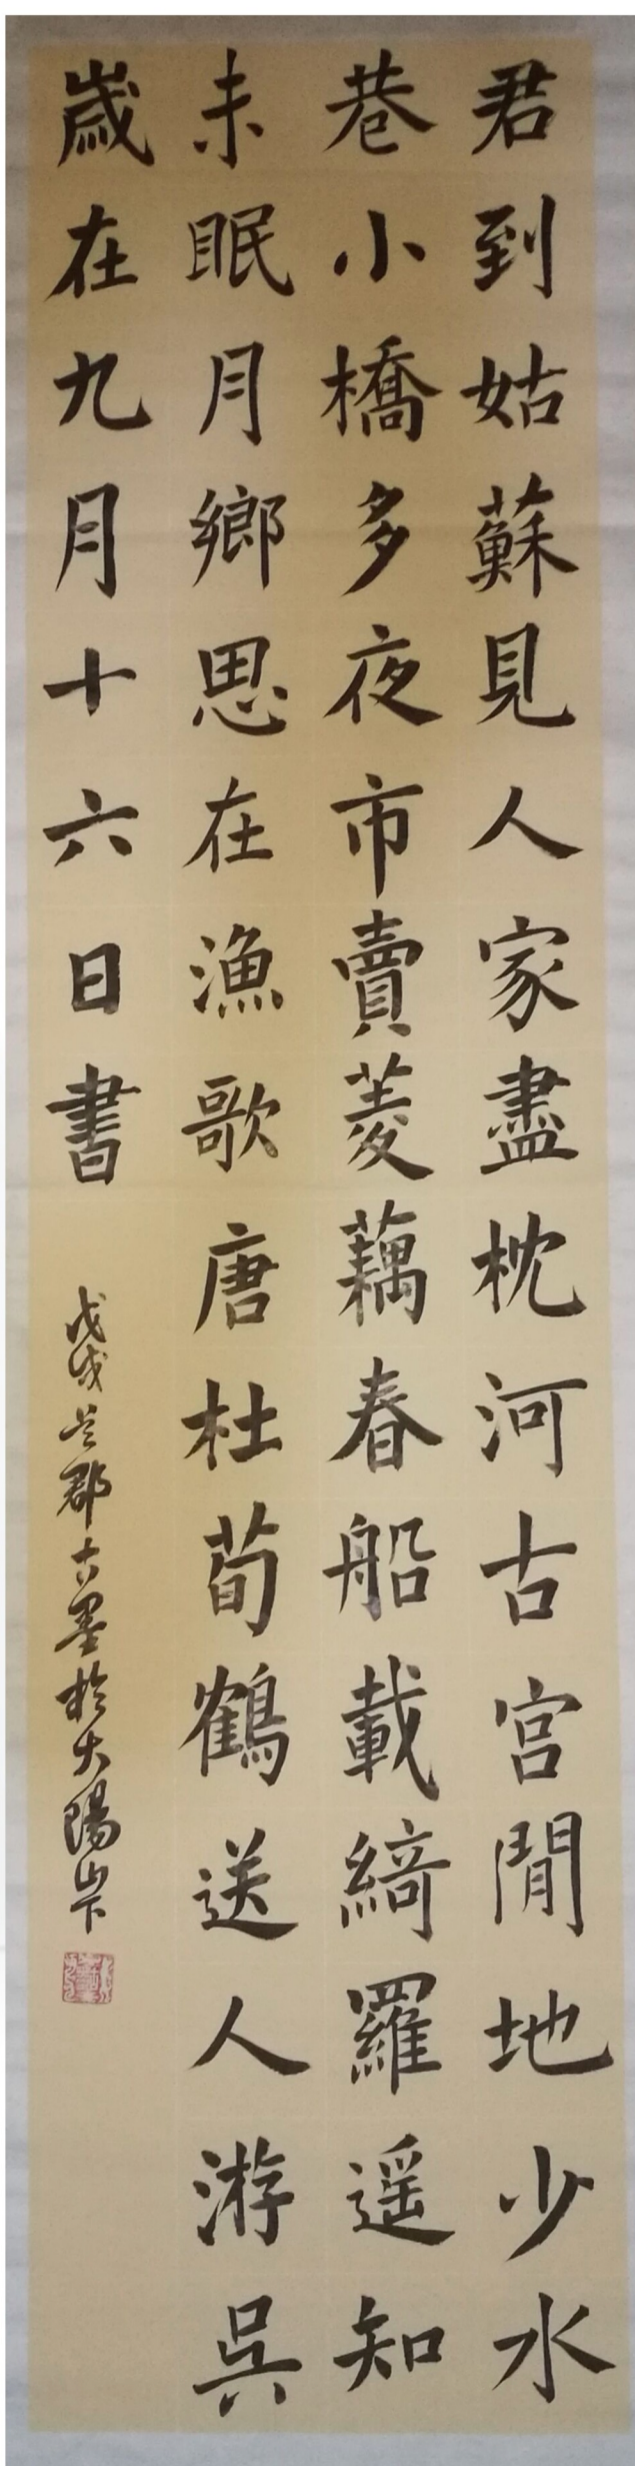 君到姑蘇見人家盡枕河古宮閒地少水
巷小橋多夜市賣菱藕春船載綺羅遥知
未眠月鄉思在漁歌唐杜荀鶴送人游吳
歲在九月十六日書
戊戌吳郡古墨於大陽山下